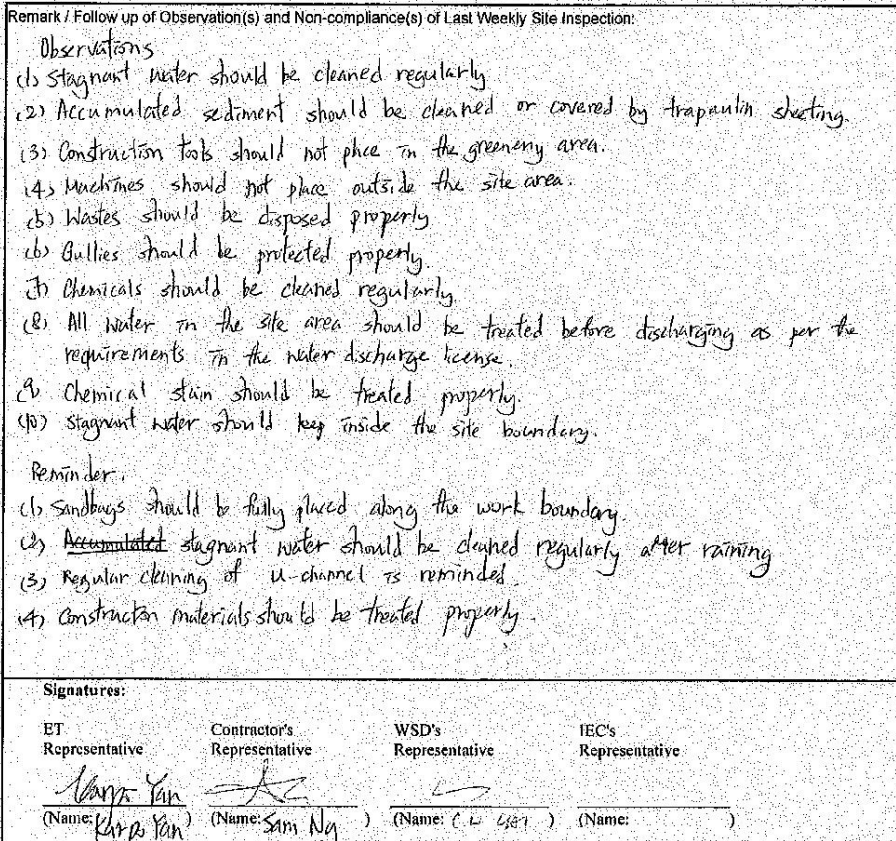 Remark / Follow up of Observation(s) and Non-compliance(s) of Last Weekly Site Inspection:
Observations
(1) Stagnant water should be cleaned regularly
(2) Accumulated sediment should be cleaned or covered by trapaulin sheeting.
(3) Construction tools should not place in the greenery area.
(4) Machines should not place outside the site area.
(5) Wastes should be disposed properly
(6) Gullies should be protected properly.
(7) Chemicals should be cleaned regularly.
(8) All water in the site area should be treated before discharging as per the
requirements in the water discharge license.
(9) Chemical stain should be treated properly.
(10) Stagnant water should keep inside the site boundary.
Reminder.
(1) Sandbags should be fully placed along the work boundary.
(2) Accumulated stagnant water should be cleaned regularly after raining
(3) Regular cleaning of U-channel is reminded.
(4) Construction materials should be treated properly.
Signatures:
ET Contractor's WSD's IEC's
Representative Representative Representative Representative
Yan
(Name: Yan ) (Name: Sam Ng ) (Name: ) (Name: )